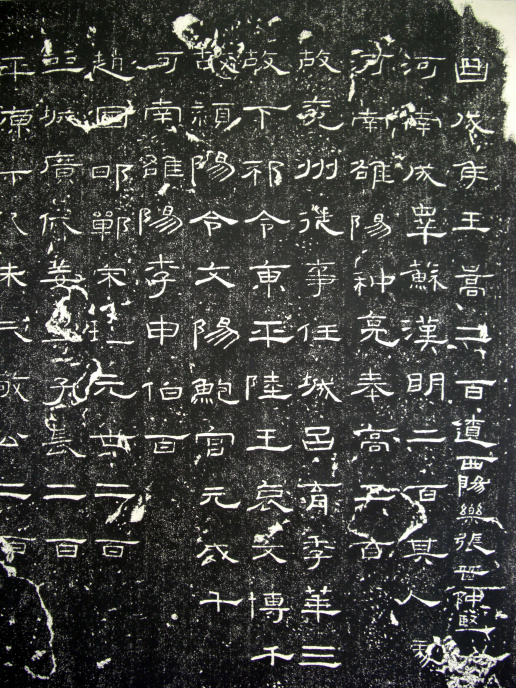 酉成年王暠二百遺西陽樂張普仲堅二
河南成睪蘇漢明二百其人處
河南雒陽种亮奉高五百
故兗州從事任城呂育季華三
故下邳令東平陸王褒文博千
故潁陽令文陽鮑宮元威千
河南雒陽李申伯百
趙國邯鄲宋瑱元世二百
彭城廣戚姜尋子長二百
平原朱敬公二百